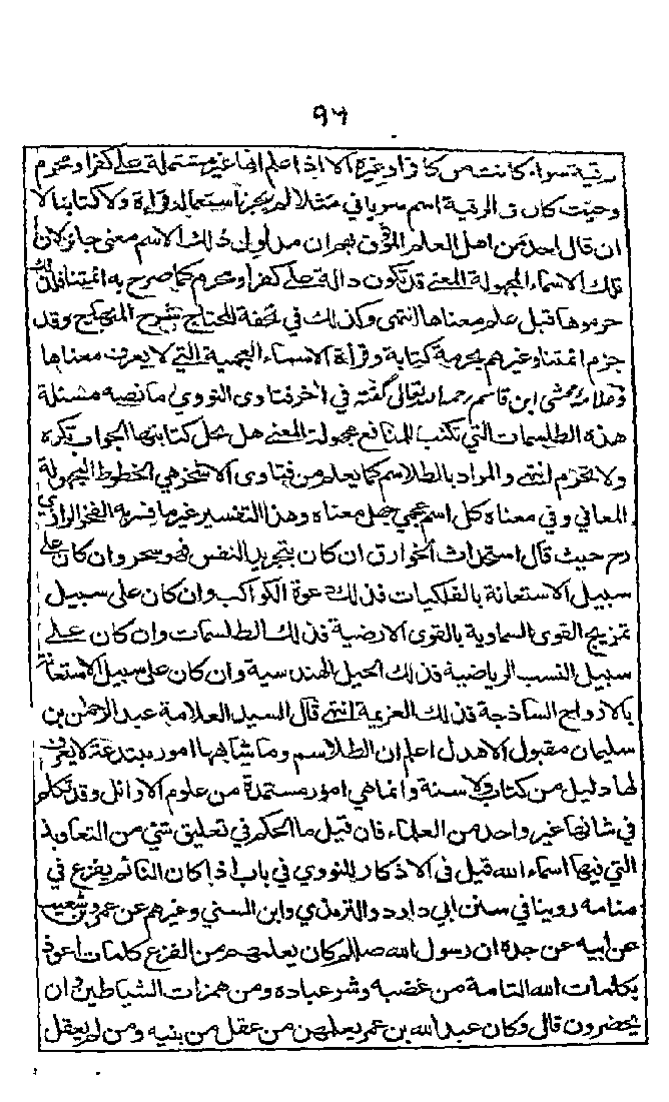 ٩٦
رقية سواء كانت من كافر او غيره الا اذا علم انها غير مشتملة على كفر او محرم
وحيث كان في الرقية اسم سرياني مثلا لم يجز استعماله قراءة ولا كتابة الا
ان قال احد من اهل العلم الموثوق بهم ان مدلول ذلك الاسم معنى جائز لان
تلك الاسماء المجهولة المعنى قد تكون دالة على كفر او محرم كما صرح به ائمتنا فلذلك
حرموها قبل علم معناها انتهى وكذلك في تحفة المحتاج بشرح المنهاج وقد
جزم ائمتنا وغيرهم بحرمة كتابة وقراءة الاسماء العجمية التي لا يعرف معناها
محشى ابن قاسم رحمه الله تعالى في اخر فتاوى النووى ما نصه مسئلة
هذه الطلسمات التي تكتب للمنافع مجهولة المعنى هل يحل كتابتها الجواب تكره
ولا تحرم انتهى والمراد بالطلاسم كما يعلم من فتاوى الا هي الخطوط المجهولة
المعاني وفي معناه كل اسم عجمي جهل معناه وهذا التفسير غير ما فسر به الفخر الرازي
رح حيث قال استحداث الخوارق ان كان بتجريد النفس فهو سحر وان كان على
سبيل الاستعانة بالفلكيات فذلك دعوة الكواكب وان كان على سبيل
تمزيج القوى السماوية بالقوى الارضية فذلك الطلسمات وان كان على
سبيل النسب الرياضية فذلك الحيل الهندسية وان كان على سبيل الاستعانة
بالارواح الساذجة فذلك العزيمة انتهى قال السيد العلامة عبد الرحمن بن
سليمان مقبول الاهدل اعلم ان الطلاسم وما شابهها امور مبتدعة لا يعرف
لها دليل من كتاب ولا سنة وانما هي امور مستمدة من علوم الاوائل وقد تكلم
في شانها غير واحد من العلماء فان قيل ما الحكم في تعليق شئ من التعاويذ
التي فيها اسماء الله قيل في الاذكار للنووي في باب اذا كان النائم يفزع في
منامه روينا في سنن ابي داود والترمذي وابن السني وغيرهم عن عمرو بن شعيب
عن ابيه عن جده ان رسول الله صلعم كان يعلمهم من الفزع كلمات اعوذ
بكلمات الله التامة من غضبه وشر عباده ومن همزات الشياطين وان
يحضرون قال وكان عبد الله بن عمر يعلمهن من عقل من بنيه ومن لم يعقل